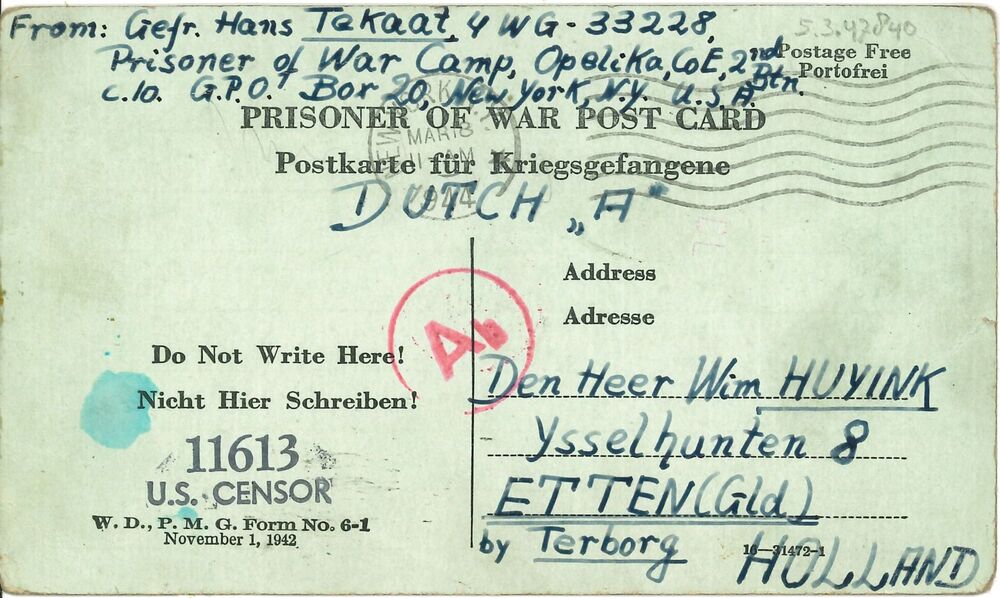 From: Gefr. Hans Tekaat, 4 WG-33228,
Prisoner of War Camp, Opelika, CoE, 2nd Btn.
c./o. G.P.O. Box 20, New York, N.Y. U.S.A.
Postage Free
Portofrei
PRISONER OF WAR POST CARD
Postkarte für Kriegsgefangene
NEW YORK
MAR 18
11 AM
1944
DUTCH „A"
Address
Adresse
Do Not Write Here!
Nicht Hier Schreiben!
11613
U.S. CENSOR
W. D., P. M. G. Form No. 6-1
November 1, 1942
Den Heer Wim HUYINK
Ysselhunten 8
ETTEN (Gld)
by Terborg
16—31472-1
HOLLAND